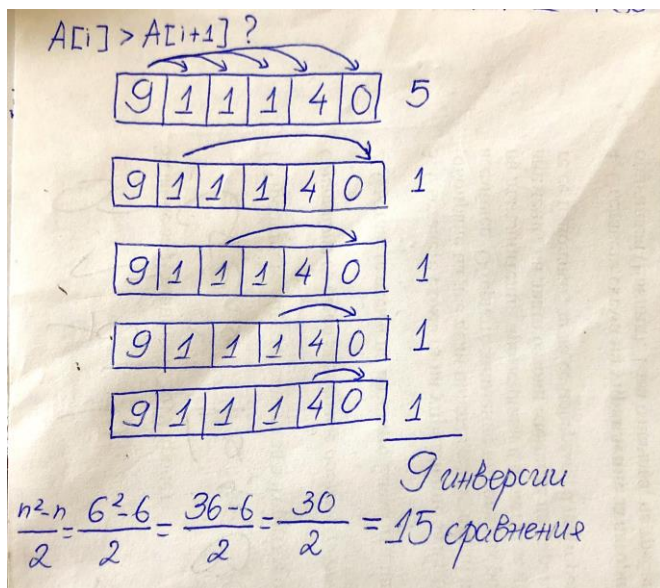 A[i] > A[i+1] ?
9 1 1 1 4 0 5
9 1 1 1 4 0 1
9 1 1 1 4 0 1
9 1 1 1 4 0 1
9 1 1 1 4 0 1
9 инверсии
n²-n/2 = 6²-6/2 = 36-6/2 = 30/2 = 15 сравнения